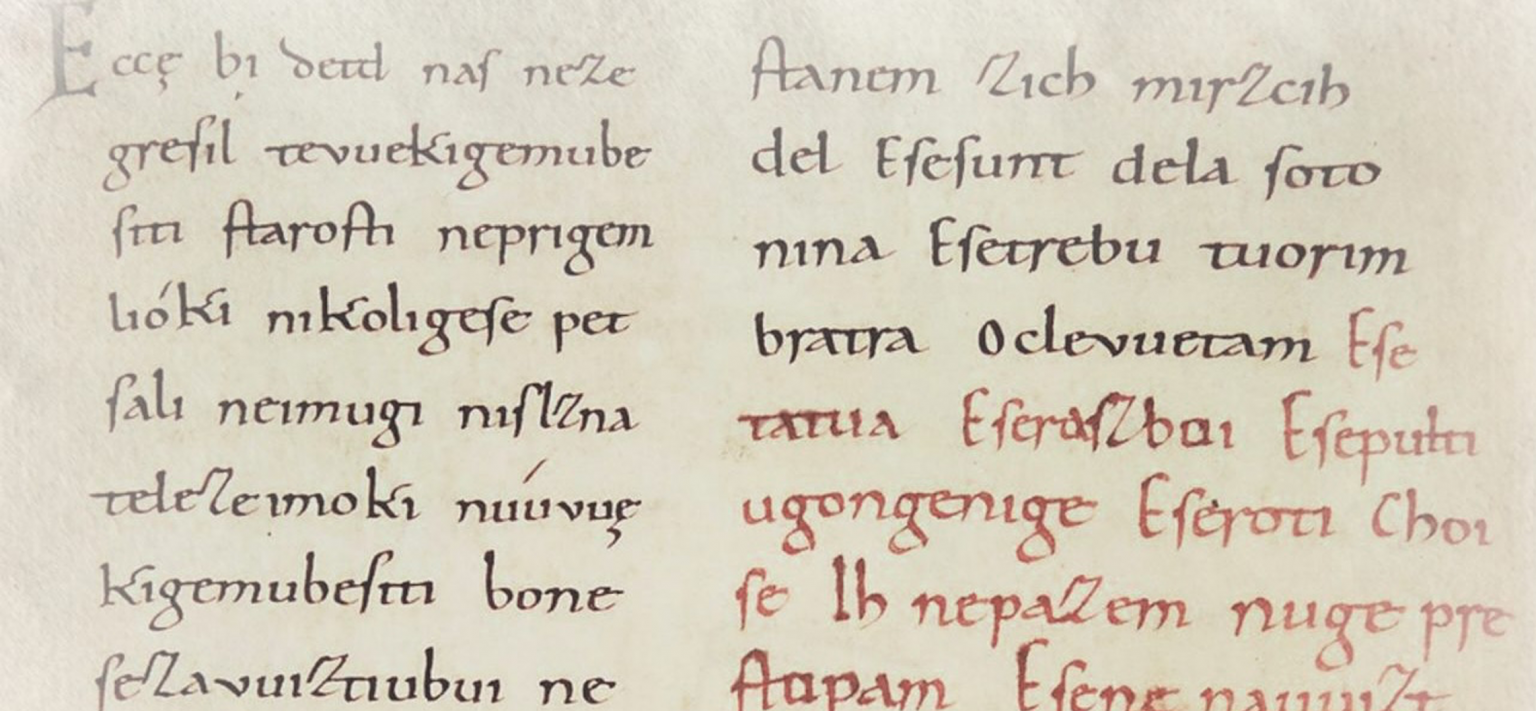 Eccę bi detd naſ neze
greſil tevuekigemube
ſiti ſtaroſti neprigem
lióki nikoligeſe pet
ſali neimugi niſlzna
telezeimoki niúvuę
kigemubeſiti bone
ſezavuiztiubui ne
ſtanem zich mirzcih
del Eſeſunt dela ſoto
nina Eſetrebu tuorim
bratra Oclevuetam Eſe
tatua Eſeraſzboi Eſepulti
ugongenige Eſeroti Choi
ſe Ih nepazem nuge pre
ſtopam Eſene nauuizt